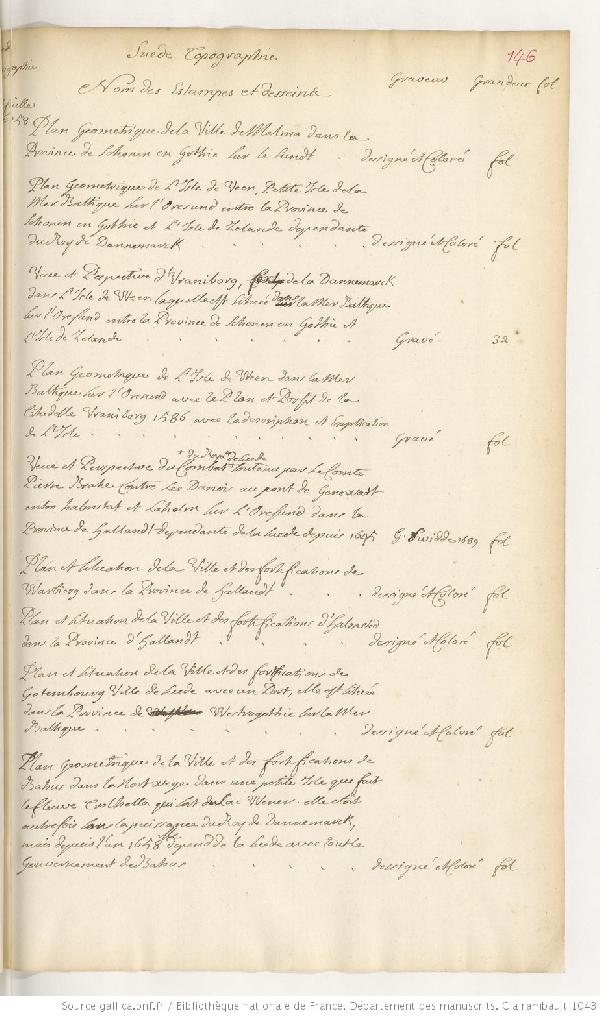 Suede Topographie 146
Nom des Estampes et desseins Graveur Grandeur fol
Plan Geometrique de la Ville de Malma dans la
Province de Schonen en Gothie sur le Sundt . designé et Coloré fol
Plan Geometrique de L'Isle de Veen, Petite Isle de la
Mer Balthique sur l'Oresund entre la Province de
Schonen en Gothie et L'Isle de Zelande dependante
du Roy de Dannemarck . . . . dessigné et Coloré fol
Veue et Perspective d'Uraniborg, de la Dannemarck
dans L'Isle de Ween laquelle est située dans la Mer Balthique
sur l'Oresund entre la Province de Schonen en Gothie et
L'Isle de Zelande . . . . . . Gravé 32
Plan Geometrique de L'Isle de Veen dans la Mer
Balthique sur l'Oresund avec le Plan et Profil de la
Citadelle Uraniborg 1586 avec la description et Explication
de L'Isle . . . . . . . Gravé fol
+ du Roy de Suede
Veue et Perspective du Combat + soutenu par le Comte
Pierre Brahe Contre les Danois au pont de
entre halmstat et Laholm sur L'Oresund dans la
Province de Hallandt dependante de la Suede depuis 1645 G. Swidde 1689 fol
Plan et situation de la Ville et des fortifications de
Warberg dans la Province de Hallandt . . dessigné et Coloré fol
Plan et situation de la Ville et des fortifications d'
dans la Province d'Hallandt . . . designé et Coloré fol
Plan et situation de la Ville et des fortifications de
Gotembourg Ville de Suede avec un Port, elle est située
dans la Province de Westrogothie sur la Mer
Balthique . . . . . . dessigné et Coloré fol
Plan Geometrique de la Ville et des fortifications de
Bahus dans la Norvegue dans une petite Isle que fait
le fleuve Trolhetta qui sort du Lac Wener. elle étoit
autrefois sous la puissance du Roy de Dannemarck,
mais depuis l'an 1658 depend de la Suede avec tout le
Gouvernement de Bahus . . . . dessigné et Coloré fol
Source gallica.bnf.fr / Bibliothèque nationale de France. Département des manuscrits. Clairambault 1043